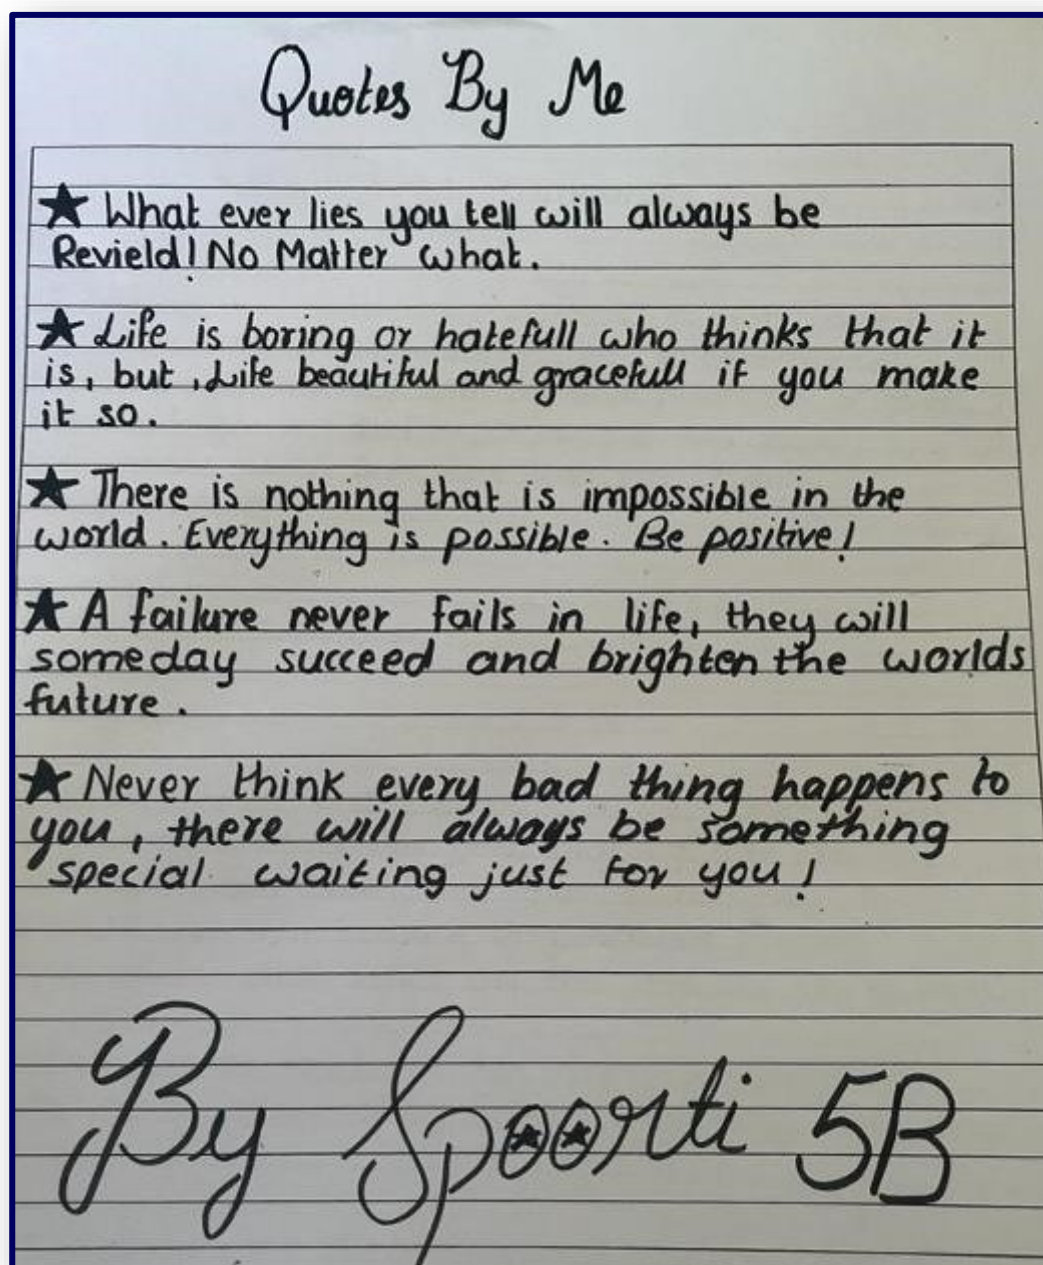 Quotes By Me
★ What ever lies you tell will always be
Revield! No Matter what.
★ Life is boring or hatefull who thinks that it
is, but , Life beautiful and gracefull if you make
it so.
★ There is nothing that is impossible in the
world. Everything is possible. Be positive!
★ A failure never fails in life, they will
someday succeed and brighten the worlds
future.
★ Never think every bad thing happens to
you, there will always be something
special waiting just for you!
By Spoorti 5B